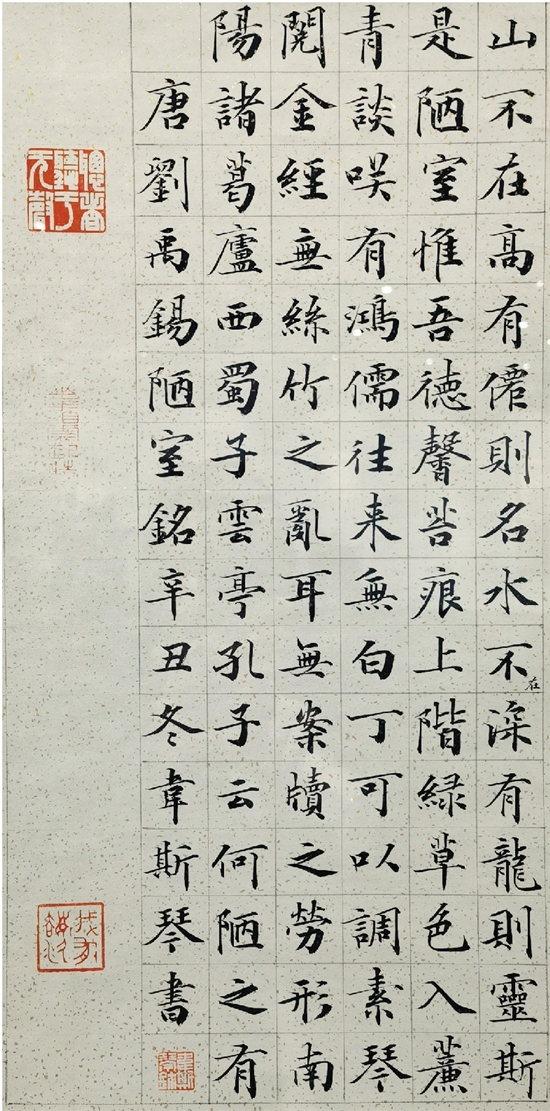 山不在高有僊則名水不在深有龍則靈斯
是陋室惟吾德馨苔痕上階緑草色入簾
青談咲有鴻儒往来無白丁可以調素琴
閱金經無絲竹之亂耳無案牘之勞形南
陽諸葛廬西蜀子雲亭孔子云何陋之有
唐劉禹錫陋室銘辛丑冬韋斯琴書